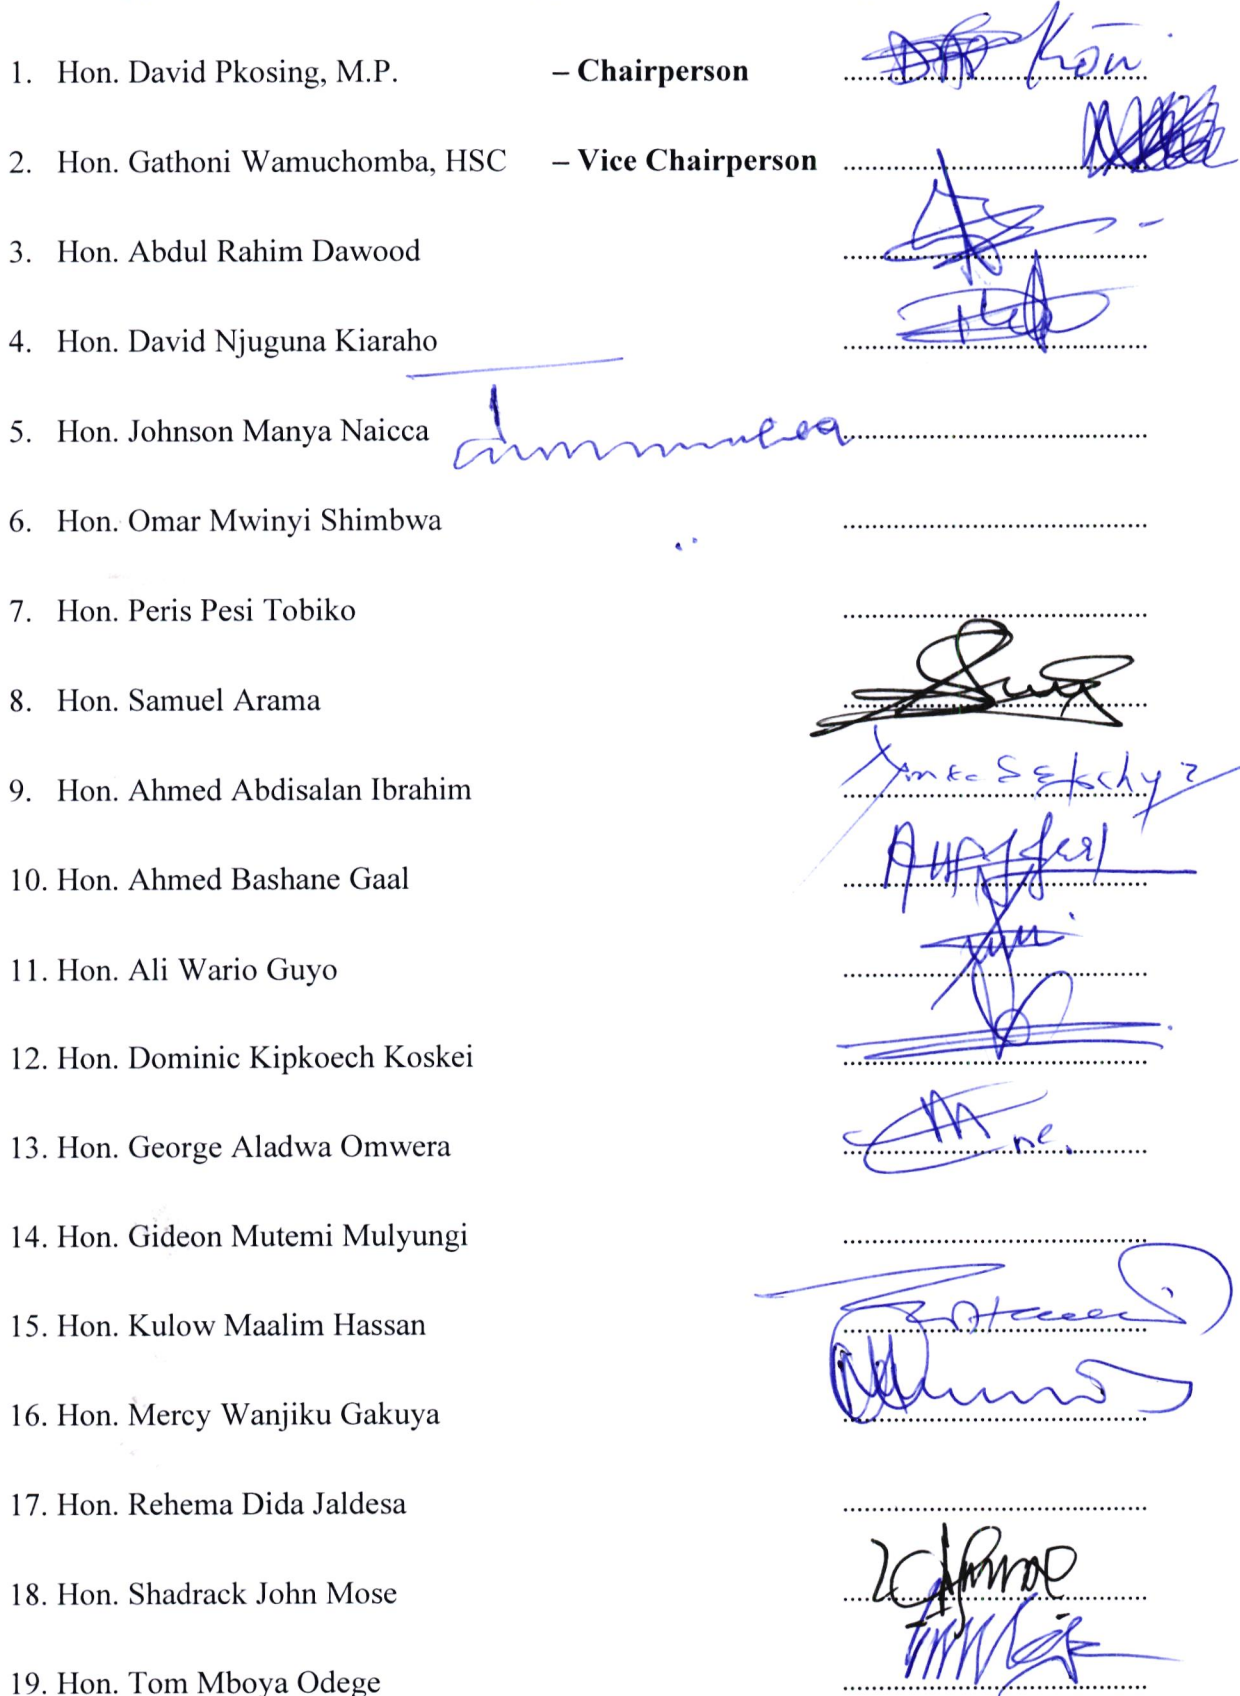 1. Hon. David Pkosing, M.P. – Chairperson ........................................
2. Hon. Gathoni Wamuchomba, HSC – Vice Chairperson ........................................
3. Hon. Abdul Rahim Dawood ........................................
4. Hon. David Njuguna Kiaraho ........................................
5. Hon. Johnson Manya Naicca ........................................
6. Hon. Omar Mwinyi Shimbwa ........................................
7. Hon. Peris Pesi Tobiko ........................................
8. Hon. Samuel Arama ........................................
9. Hon. Ahmed Abdisalan Ibrahim ........................................
10. Hon. Ahmed Bashane Gaal ........................................
11. Hon. Ali Wario Guyo ........................................
12. Hon. Dominic Kipkoech Koskei ........................................
13. Hon. George Aladwa Omwera ........................................
14. Hon. Gideon Mutemi Mulyungi ........................................
15. Hon. Kulow Maalim Hassan ........................................
16. Hon. Mercy Wanjiku Gakuya ........................................
17. Hon. Rehema Dida Jaldesa ........................................
18. Hon. Shadrack John Mose ........................................
19. Hon. Tom Mboya Odege ........................................